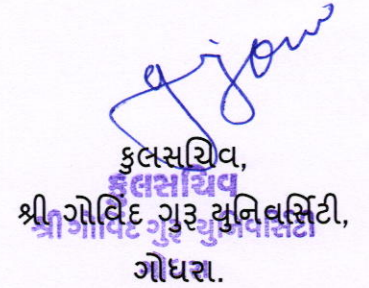 કુલસચિવ,
કુલસચિવ
શ્રી ગોવિંદ ગુરુ યુનિવર્સિટી,
શ્રી ગોવિંદ ગુરુ યુનિવર્સિટી
ગોધરા.